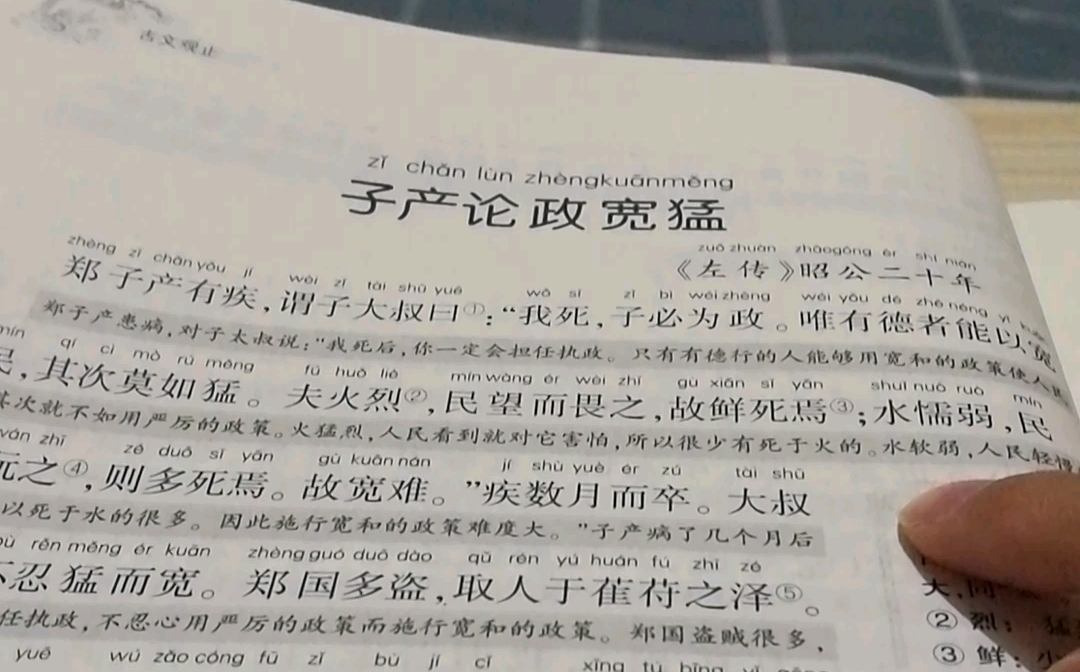 古文观止
zǐ chǎn lùn zhèng kuān měng
子产论政宽猛
zuǒ zhuàn zhāo gōng èr shí nián
《左传》昭公二十年
zhèng zǐ chǎn yǒu jí wèi zǐ tài shū yuē wǒ sǐ zǐ bì wéi zhèng wéi yǒu dé zhě néng yǐ
郑子产有疾，谓子大叔曰①：“我死，子必为政。唯有德者能以宽
郑子产患病，对子太叔说：“我死后，你一定会担任执政。只有有德行的人能够用宽和的政策使人民
mín qí cì mò rú měng fú huǒ liè mín wàng ér wèi zhī gù xiǎn sǐ yān shuǐ nuò ruò mín
民，其次莫如猛。夫火烈②，民望而畏之，故鲜死焉③；水懦弱，民
其次就不如用严厉的政策。火猛烈，人民看到就对它害怕，所以很少有死于火的。水软弱，人民轻慢
wán zhī zé duō sǐ yān gù kuān nán jí shù yuè ér zú tài shū
玩之④，则多死焉。故宽难。”疾数月而卒。大叔
以死于水的很多。因此施行宽和的政策难度大。”子产病了几个月后
bù rěn měng ér kuān zhèng guó duō dào qǔ rén yú huán fú zhī zé
不忍猛而宽。郑国多盗，取人于萑苻之泽⑤。
任执政，不忍心用严厉的政策而施行宽和的政策。郑国盗贼很多，
yuē wú zǎo cóng fū zǐ bù jí cǐ xīng tú bīng yǐ gōng
② 烈：猛
③ 鲜：少